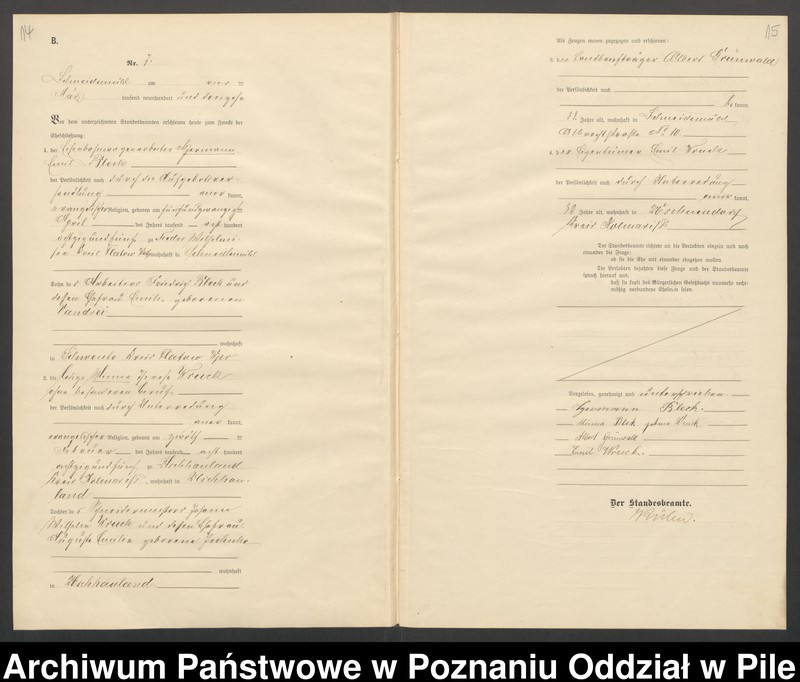 14
B.
Nr. 7.
Schneidemühl am vier ten
März tausend neunhundert und dreizehn
Vor dem unterzeichneten Standesbeamten erschienen heute zum Zwecke der
Eheschließung:
1. der Hermann
Emil Bleck
der Persönlichkeit nach durch die Aufgebotsver-
handlung
kannt,
evangelischer Religion, geboren am fünfundzwanzigsten
April des Jahres tausend acht hundert
achtzigundfünf zu Wilhelms-
Kreis Flatow wohnhaft in Schneidemühl
Sohn des Arbeiters Friedrich Bleck und
dessen Ehefrau Emilie geborenen
wohnhaft
in Schwente Kreis Flatow Wpr
2. die ledige Minna Wruck
ohne besonderen Beruf
der Persönlichkeit nach durch Unterredung
kannt,
evangelischer Religion, geboren am zwölf ten
Februar des Jahres tausend acht hundert
achtzigundfünf zu Uschhauland
Kreis Kolmar i/P. wohnhaft in Uschhau-
land
Tochter des Schneidermeisters Johann
Wilhelm Wruck und dessen Ehefrau
Auguste Emilie geborene
wohnhaft
in Uschhauland
15
Als Zeugen waren zugezogen und erschienen:
3. der Landbriefträger Albert Grünwald
der Persönlichkeit nach
be kannt,
Jahre alt, wohnhaft in Schneidemühl
Albrechtstraße No 10
4. der Eigentümer Emil Wruck
der Persönlichkeit nach durch Unterredung
kannt,
Jahre alt, wohnhaft in Uschneudorf
Kreis Kolmar i/P.
Der Standesbeamte richtete an die Verlobten einzeln und nach
einander die Frage:
ob sie die Ehe mit einander eingehen wollen.
Die Verlobten bejahten diese Frage und der Standesbeamte
sprach hierauf aus,
daß sie kraft des Bürgerlichen Gesetzbuchs nunmehr recht-
mäßig verbundene Eheleute seien.
Vorgelesen, genehmigt und unterschrieben
Hermann Bleck.
Minna Bleck geborne Wruck.
Albert Grünwald
Emil Wruck.
Der Standesbeamte.
Archiwum Państwowe w Poznaniu Oddział w Pile